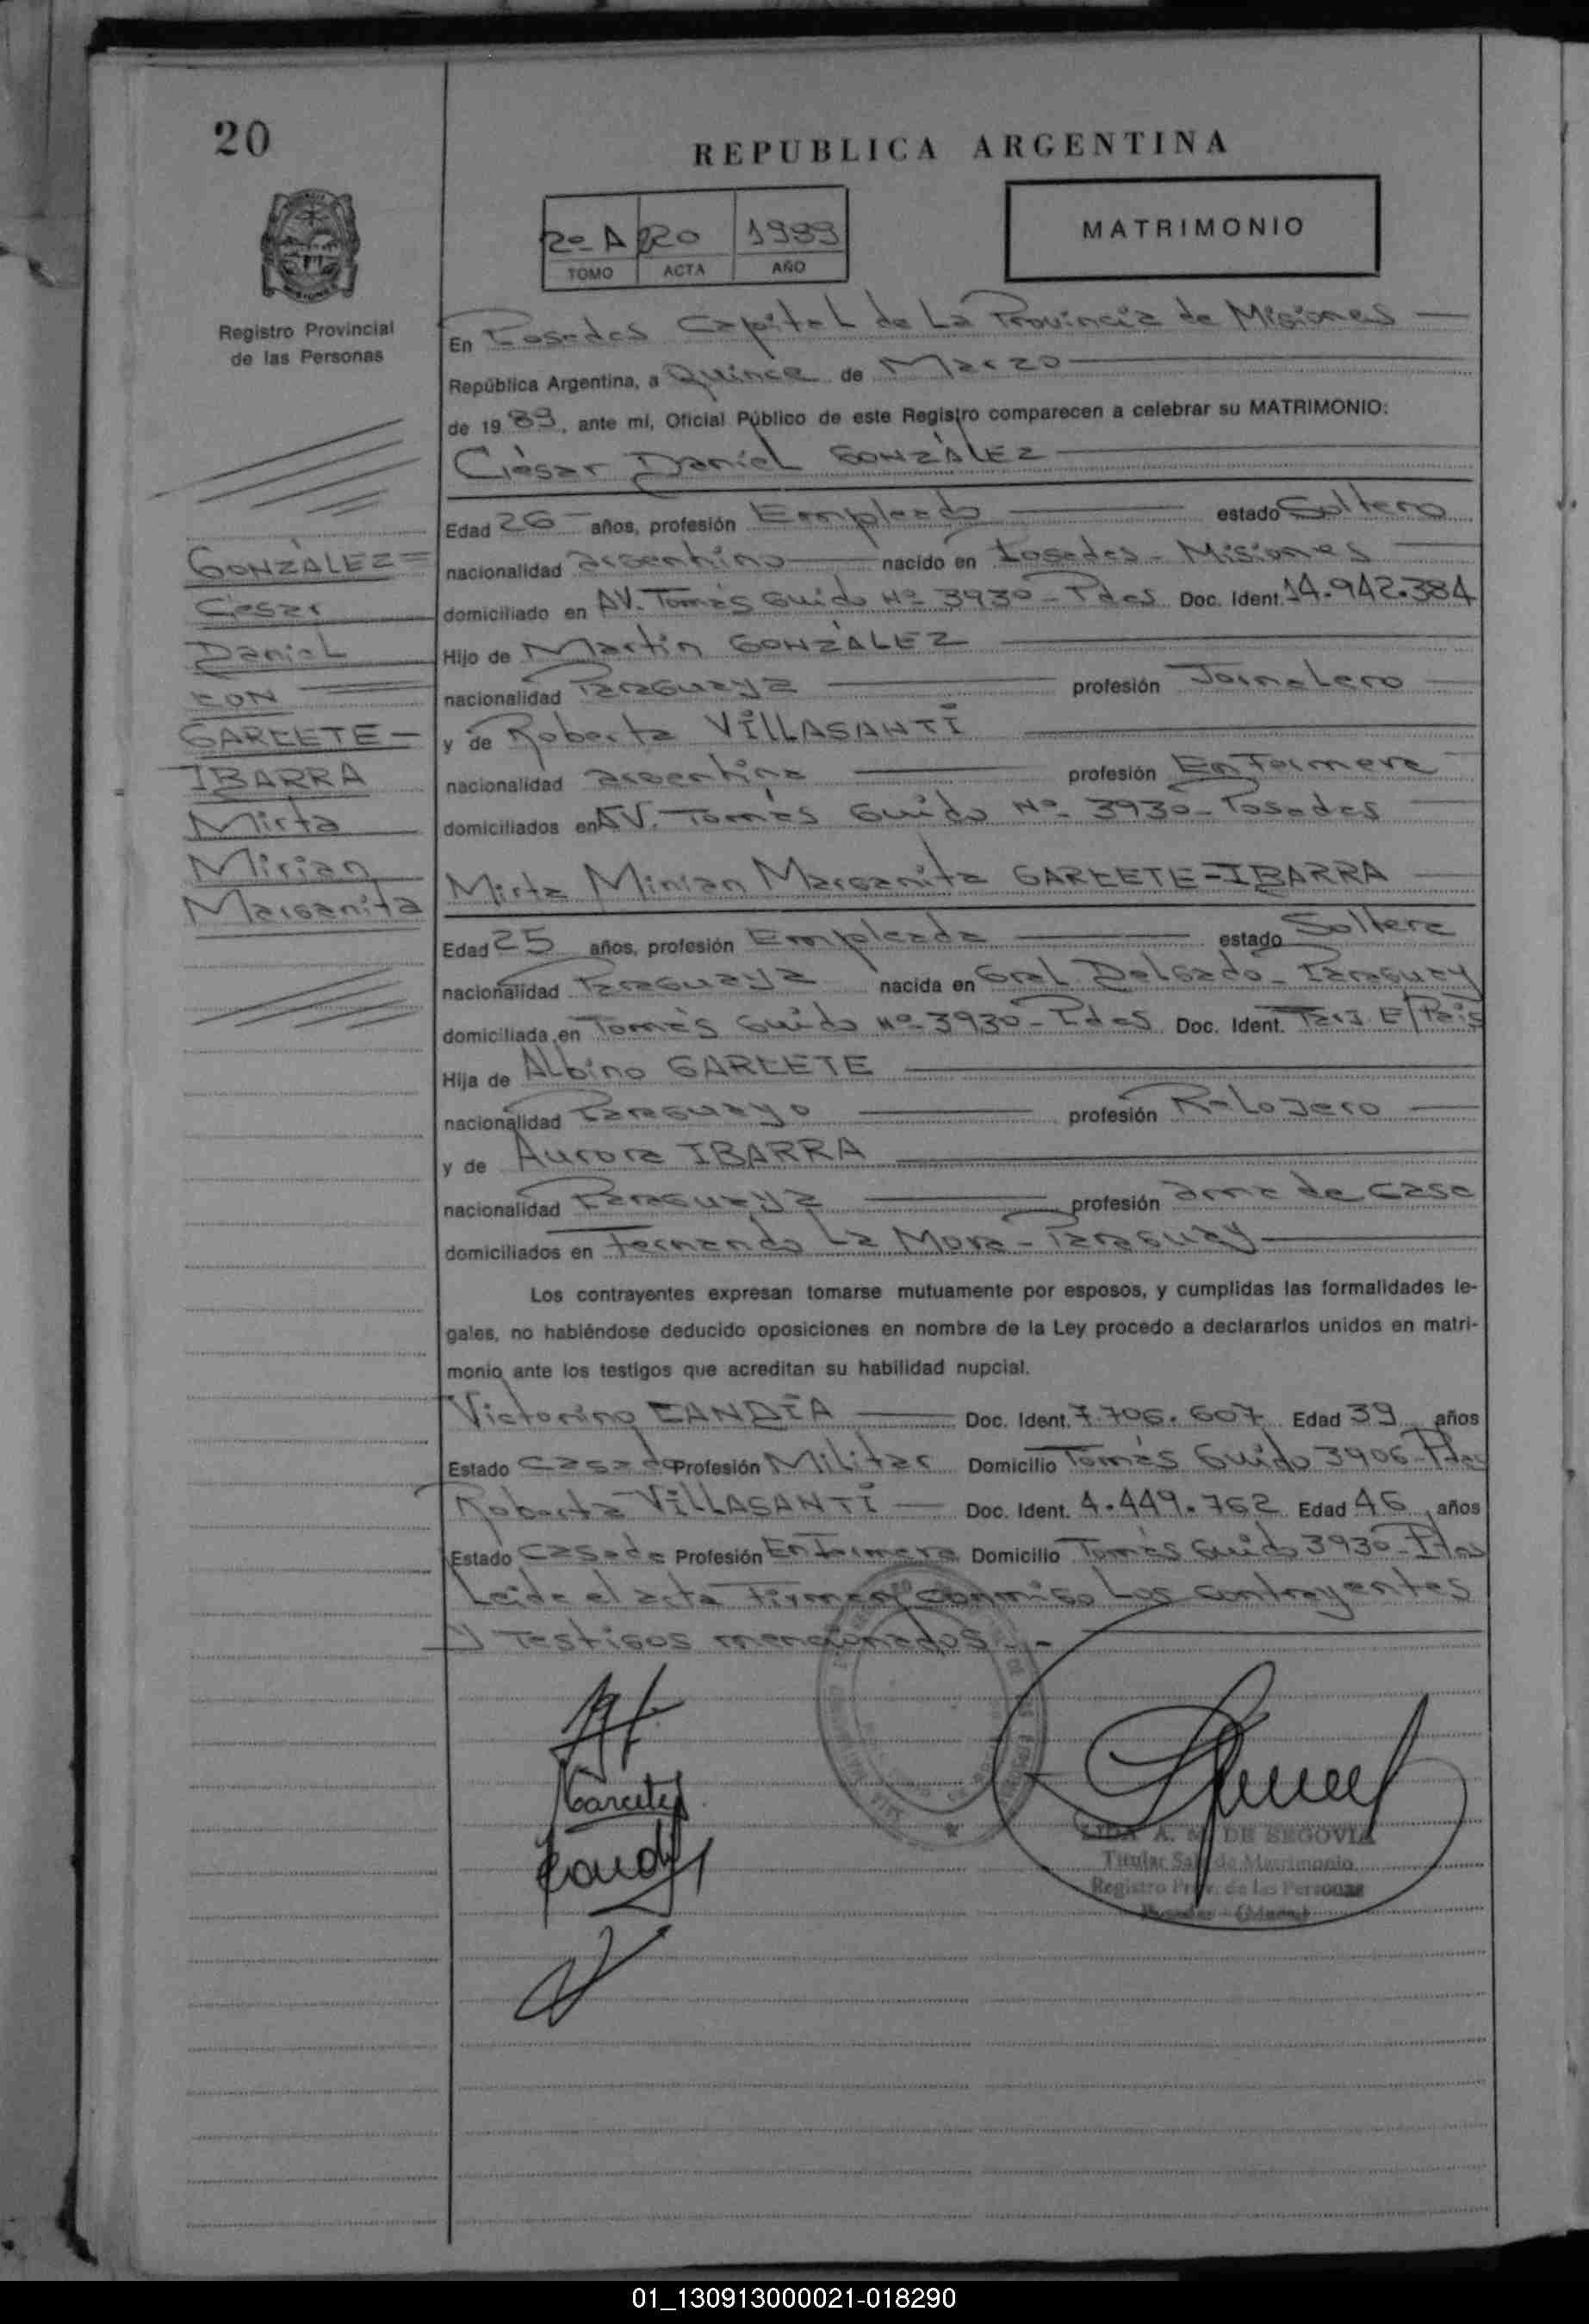 20
REPUBLICA ARGENTINA
2º A 220 1989
TOMO ACTA AÑO
MATRIMONIO
Registro Provincial
de las Personas
En Posadas Capital de La Provincia de Misiones
República Argentina, a Quince de Marzo
de 1989, ante mí, Oficial Público de este Registro comparecen a celebrar su MATRIMONIO:
César Daniel GONZÁLEZ
Edad 26 años, profesión Empleado estado Soltero
nacionalidad argentino nacido en Posadas - Misiones
domiciliado en AV. Tomás Guido Nº 3930 - Pdas Doc. Ident. 14.942.384
Hijo de Martín GONZÁLEZ
nacionalidad Paraguaya profesión Jornalero
y de Roberta VILLASANTI
nacionalidad argentina profesión Enfermera
domiciliados en AV. Tomás Guido Nº 3930 - Posadas
Mirta Mirian Margarita GARCETE-IBARRA
Edad 25 años, profesión Empleada estado Soltera
nacionalidad Paraguaya nacida en Gral Delgado - Paraguay
domiciliada en Tomás Guido Nº 3930 - Pdas Doc. Ident. E/País
Hija de Albino GARCETE
nacionalidad Paraguayo profesión Relojero
y de Aurora IBARRA
nacionalidad Paraguaya profesión ama de casa
domiciliados en Fernando La Mora - Paraguay
GONZÁLEZ =
César
Daniel
CON
GARCETE -
IBARRA
Mirta
Mirian
Margarita
Los contrayentes expresan tomarse mutuamente por esposos, y cumplidas las formalidades le-
gales, no habiéndose deducido oposiciones en nombre de la Ley procedo a declararlos unidos en matri-
monio ante los testigos que acreditan su habilidad nupcial.
Victorino CANDÍA Doc. Ident. 7.706.607 Edad 39 años
Estado Casado Profesión Militar Domicilio Tomás Guido 3906 - Pdas
Roberta VILLASANTI Doc. Ident. 4.449.762 Edad 46 años
Estado Casada Profesión Enfermera Domicilio Tomás Guido 3930 - Pdas
Leída el acta firman conmigo Los contrayentes
y Testigos mencionados.-
Garcete
LIDA A. M. DE SEGOVIA
Titular Sala de Matrimonio
Registro Prov. de las Personas
01_130913000021-018290